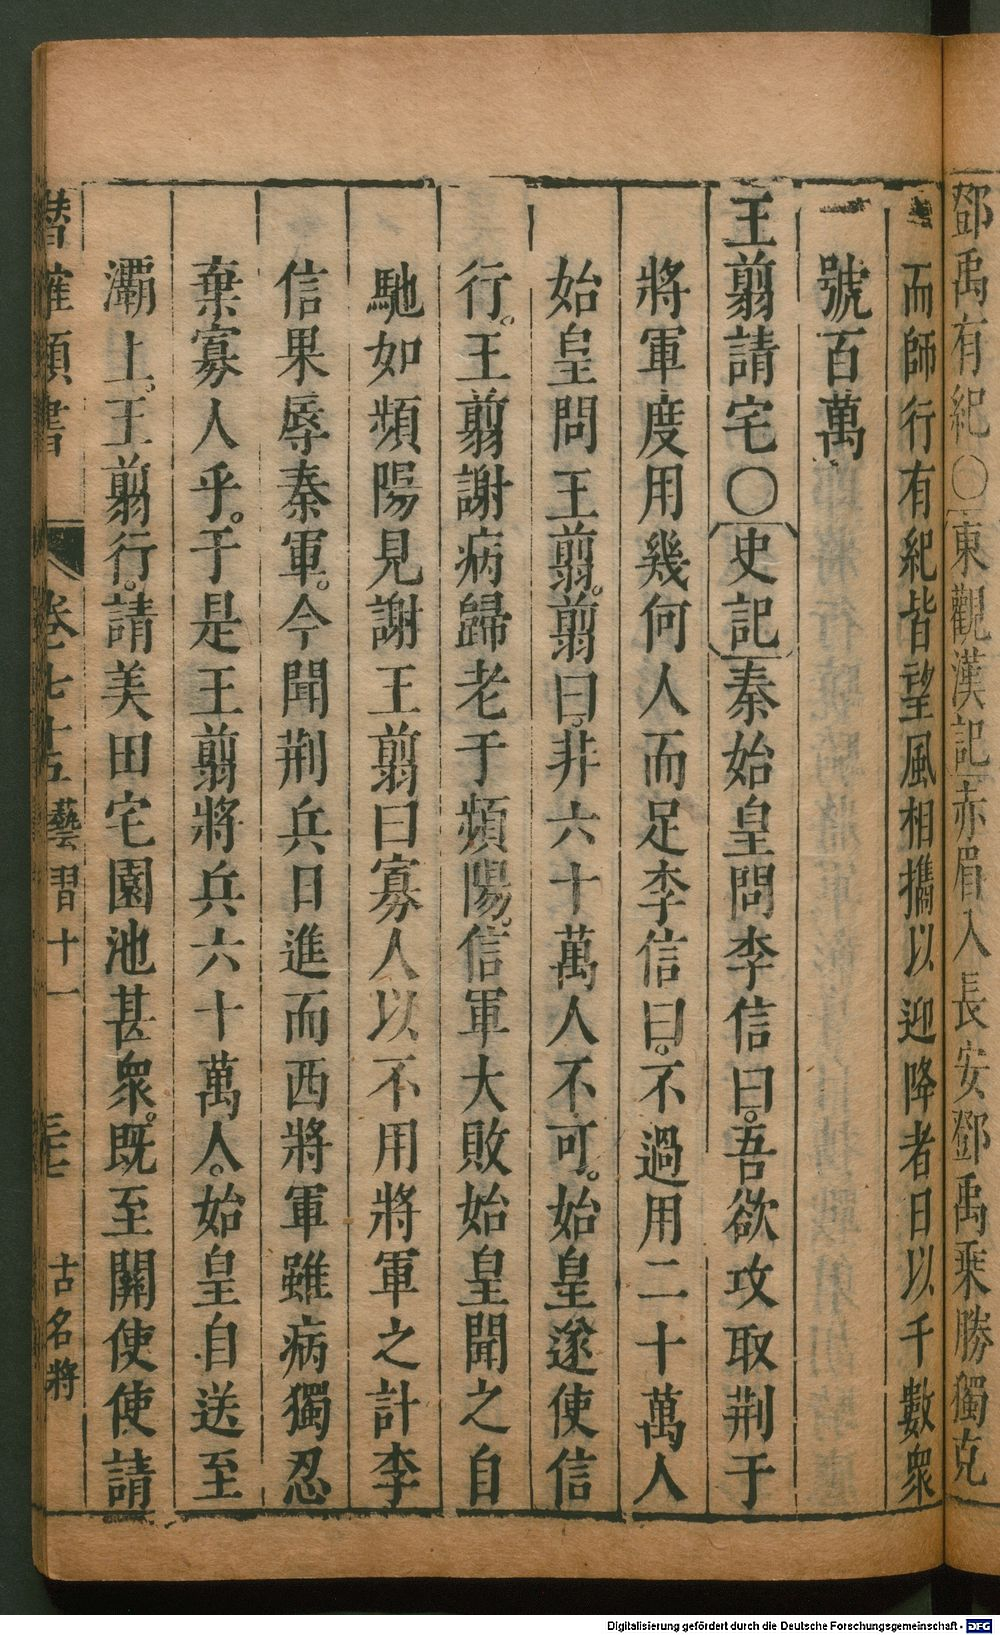 鄧禹有紀〇東觀漢記赤眉入長安鄧禹乘勝獨克
而師行有紀皆望風相攜以迎降者日以千數衆
號百萬
王翦請宅〇史記秦始皇問李信曰。吾欲攻取荆于
將軍度用幾何人而足李信曰。不過用二十萬人
始皇問王翦。翦曰。非六十萬人不可。始皇遂使信
行。王翦謝病歸老于頻陽。信軍大敗始皇聞之自
馳如頻陽見謝王翦曰寡人以不用將軍之計李
信果辱秦軍。今聞荆兵日進而西將軍雖病獨忍
棄寡人乎。于是王翦將兵六十萬人。始皇自送至
灞上。王翦行。請美田宅園池甚衆。既至關使使請
類書 卷七十五 藝習十一 三十七 古名將
Digitalisierung gefördert durch die Deutsche Forschungsgemeinschaft - DFG